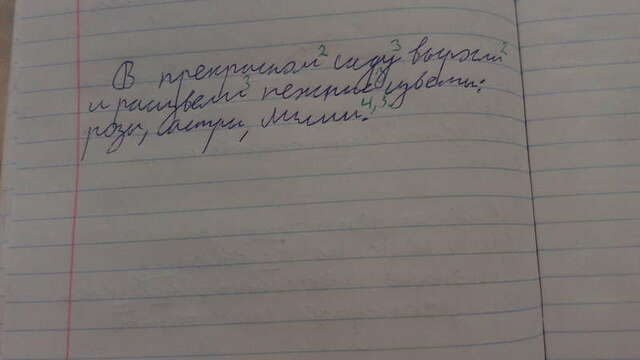 В прекрасном² саду³ выросли²
и расцвели³ нежные² цветы:
розы, астры, лилии.⁴,⁵